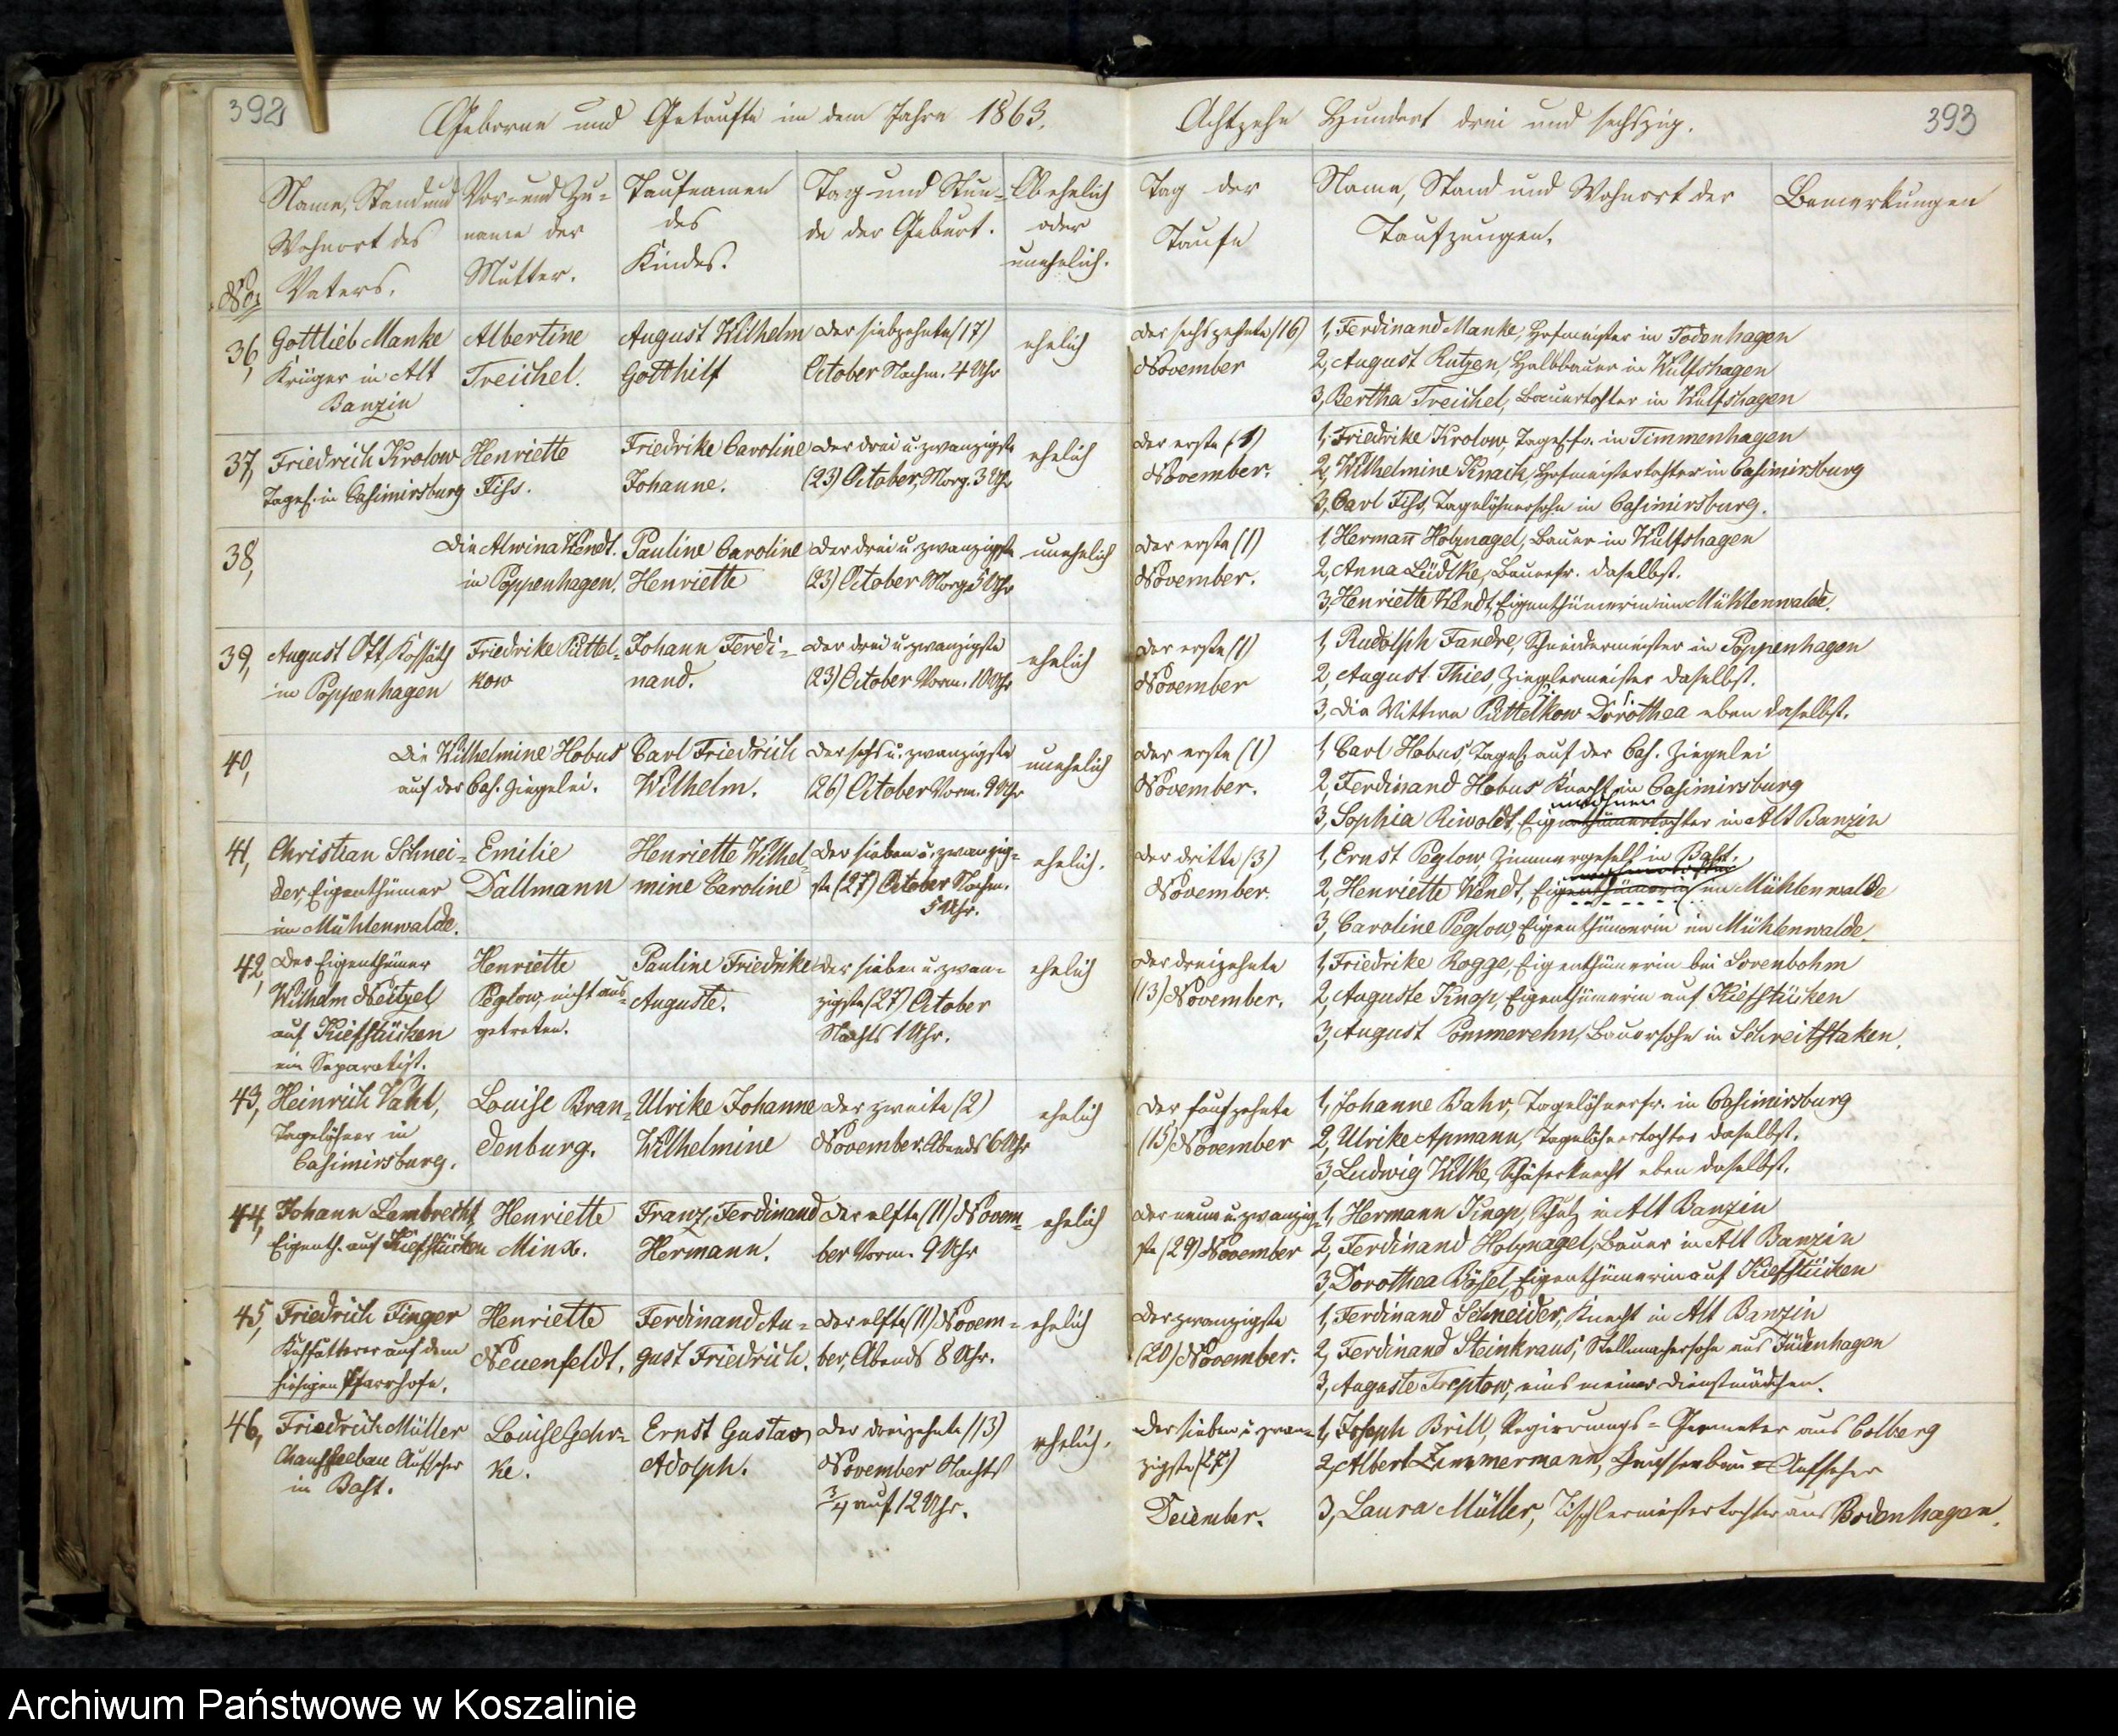 392
Geborne und Getaufte in dem Jahre 1863.
No:
Name, Stand und
Wohnort des
Vaters.
Vor- und Zu-
name der
Mutter.
Taufnamen
des
Kindes.
Tag und Stun-
de der Geburt.
Ob ehelich
oder
unehelich.
36,
Gottlieb Manke
Krüger in Alt
Banzin
Albertine
Treichel.
August Wilhelm
Gotthilf
der siebzehnte (17)
October Nachm. 4 Uhr
ehelich
37,
Friedrich Krolow
Tagel. in Casimirsburg
Henriette
Fiss.
Friedrike Caroline
Johanne.
der drei u. zwanzigste
(23) October, Morg. 3 Uhr
ehelich
38,
die Alwina Wendt.
in Poppenhagen.
Pauline Caroline
Henriette
der drei u. zwanzigste
(23) October Morg. 5 Uhr
unehelich
39,
August Ott, Kossäth
in Poppenhagen
Friedrike Püttel-
kow
Johann Ferdi-
nand.
der drei u. zwanzigste
(23) October Vorm. 10 Uhr
ehelich
40,
Die Wilhelmine Hobus
auf der Cas. Ziegelei.
Carl Friedrich
Wilhelm.
der sechs u. zwanzigste
(26) October Vorm. 9 Uhr
unehelich
41,
Christian Schnei-
der, Eigenthümer
im Mühlenwalde.
Emilie
Dallmann
Henriette Wilhel-
mine Caroline
der sieben u. zwanzig-
ste (27) October Nachm.
5 Uhr.
ehelich.
42,
Der Eigenthümer
Wilhelm Neitzel
auf Kiefstücken
ein Separatist.
Henriette
Peglow, nicht aus-
getreten.
Pauline Friedrike
Auguste.
der sieben u. zwan-
zigste (27) October
Nachts 1 Uhr.
ehelich
43,
Heinrich Vahl,
Tagelöhner in
Casimirsburg.
Louise Bran-
denburg.
Ulrike Johanne
Wilhelmine
der zweite (2)
November. Abends 6 Uhr
ehelich
44,
Johann Lambrecht
Eigenth. auf Kiefstücken
Henriette
Minx.
Franz, Ferdinand
Hermann.
der elfte (11) Novem-
ber Vorm. 9 Uhr
ehelich
45,
Friedrich Finger
Kuhfütterer auf dem
hiesigen Pfarrhofe.
Henriette
Neuenfeldt.
Ferdinand Au-
gust Friedrich.
der elfte (11) Novem-
ber, Abends 8 Uhr.
ehelich
46,
Friedrich Müller
Chausseebau Aufseher
in Bast.
Louise Gehr-
ke.
Ernst Gustav
Adolph.
der dreizehnte (13)
November Nachts
3/4 auf 12 Uhr.
ehelich.
393
Achtzehn Hundert drei und sechszig.
Tag der
Taufe
Name, Stand und Wohnort der
Taufzeugen.
Bemerkungen
der sechszehnte (16)
November
1, Ferdinand Manke, Hofmeister in Todenhagen
2, August Rutzen, Halbbauer in Wulfshagen
3, Bertha Treichel, Bauertochter in Wulfshagen
der erste (1)
November.
1, Friedrike Krolow, Tagel.fr. in Timmenhagen
2, Wilhelmine Knack, Hofmeistertochter in Casimirsburg
3, Carl Fiss, Tagelöhnersohn in Casimirsburg.
der erste (1)
November.
1, Hermann Holznagel, Bauer in Wulfshagen
2, Anna Lüdtke, Bauerfr. daselbst.
3, Henriette Wendt, Eigenthümerin im Mühlenwalde.
der erste (1)
November
1, Rudolph Fandre, Schneidermeister in Poppenhagen
2, August Thies, Zieglermeister daselbst.
3, die Wittwe Püttelkow Dorothea eben daselbst.
der erste (1)
November.
1, Carl Hobus, Tagel. auf der Cas. Ziegelei
2, Ferdinand Hobus Knecht in Casimirsburg
3, Sophia Riwoldt, Eigenthümertochter in Alt Banzin
der dritte (3)
November.
1, Ernst Peglow, Zimmergesell in Bast.
2, Henriette Wendt, Eigenthümerin im Mühlenwalde
3, Caroline Peglow, Eigenthümerin im Mühlenwalde.
der dreizehnte
(13) November.
1, Friedrike Rogge, Eigenthümerin bei Sorenbohm
2, Auguste Knop, Eigenthümerin auf Kiefstücken
3, August Pommerehn, Bauersohn in Schreitstaken.
der funfzehnte
(15) November
1, Johanne Bahr, Tagelöhnerfr. in Casimirsburg
2, Ulrike Apmann, Tagelöhnertochter daselbst.
3, Ludwig Wilke, Schäferknecht eben daselbst.
der neun u. zwanzig-
ste (29) November
1, Hermann Knop, Schulz in Alt Banzin
2, Ferdinand Holznagel, Bauer in Alt Banzin
3, Dorothea Bösel, Eigenthümerin auf Kiefstücken
der zwanzigste
(20) November.
1, Ferdinand Schneider, Knecht in Alt Banzin
2, Ferdinand Steinkraus, Stellmachersohn aus Jüdenhagen
3, Auguste Treptow, eins meiner Dienstmädchen.
der sieben u. zwan-
zigste (27)
December.
1, Joseph Brill, Regierungs-Geometer aus Colberg
2, Albert Zimmermann, Chausseebau-Aufseher
3, Laura Müller, Tischlermeistertochter aus Bodenhagen.
Archiwum Państwowe w Koszalinie